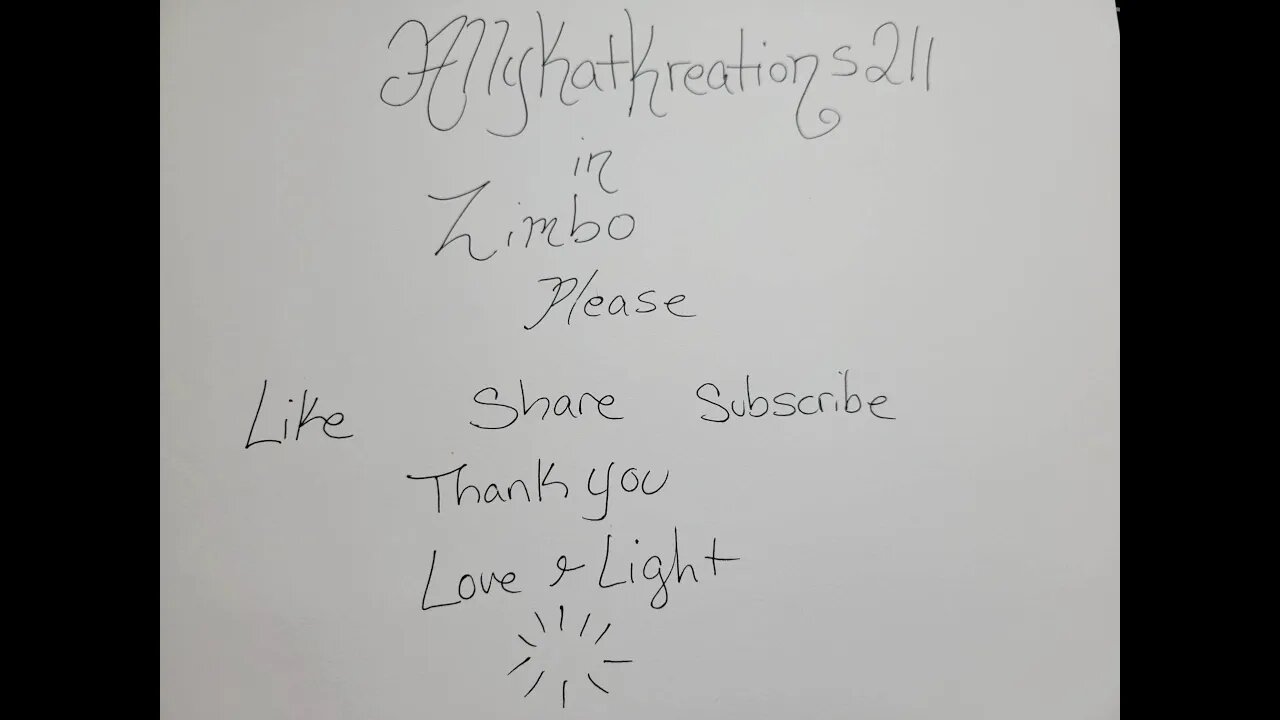 AllykatKreations211
in
Zimbo
Please
Like Share Subscribe
Thank you
Love & Light